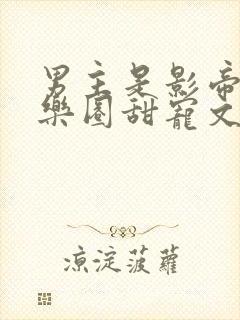 男主是影帝
樂圈甜寵文
涼淀菠蘿